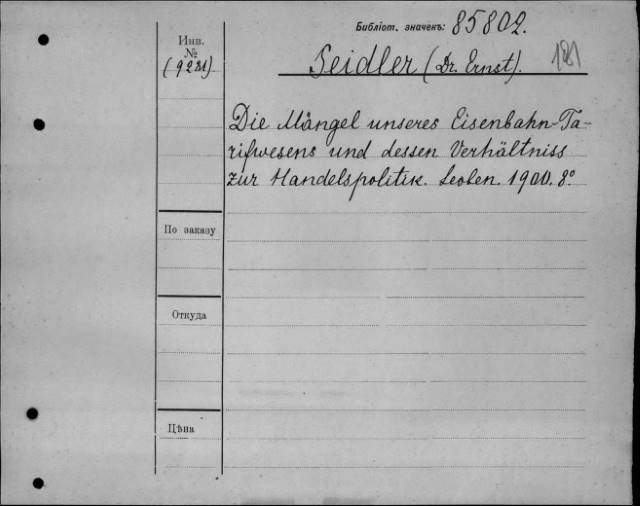 Библіот. значекъ: 85802.
Инв.
№
(9231)
Seidler (Dr. Ernst).
181
Die Mängel unseres Eisenbahn-Ta-
rifwesens und dessen Verhältniss
zur Handelspolitik. Leoben. 1900. 8°
По заказу
Откуда
Цѣна